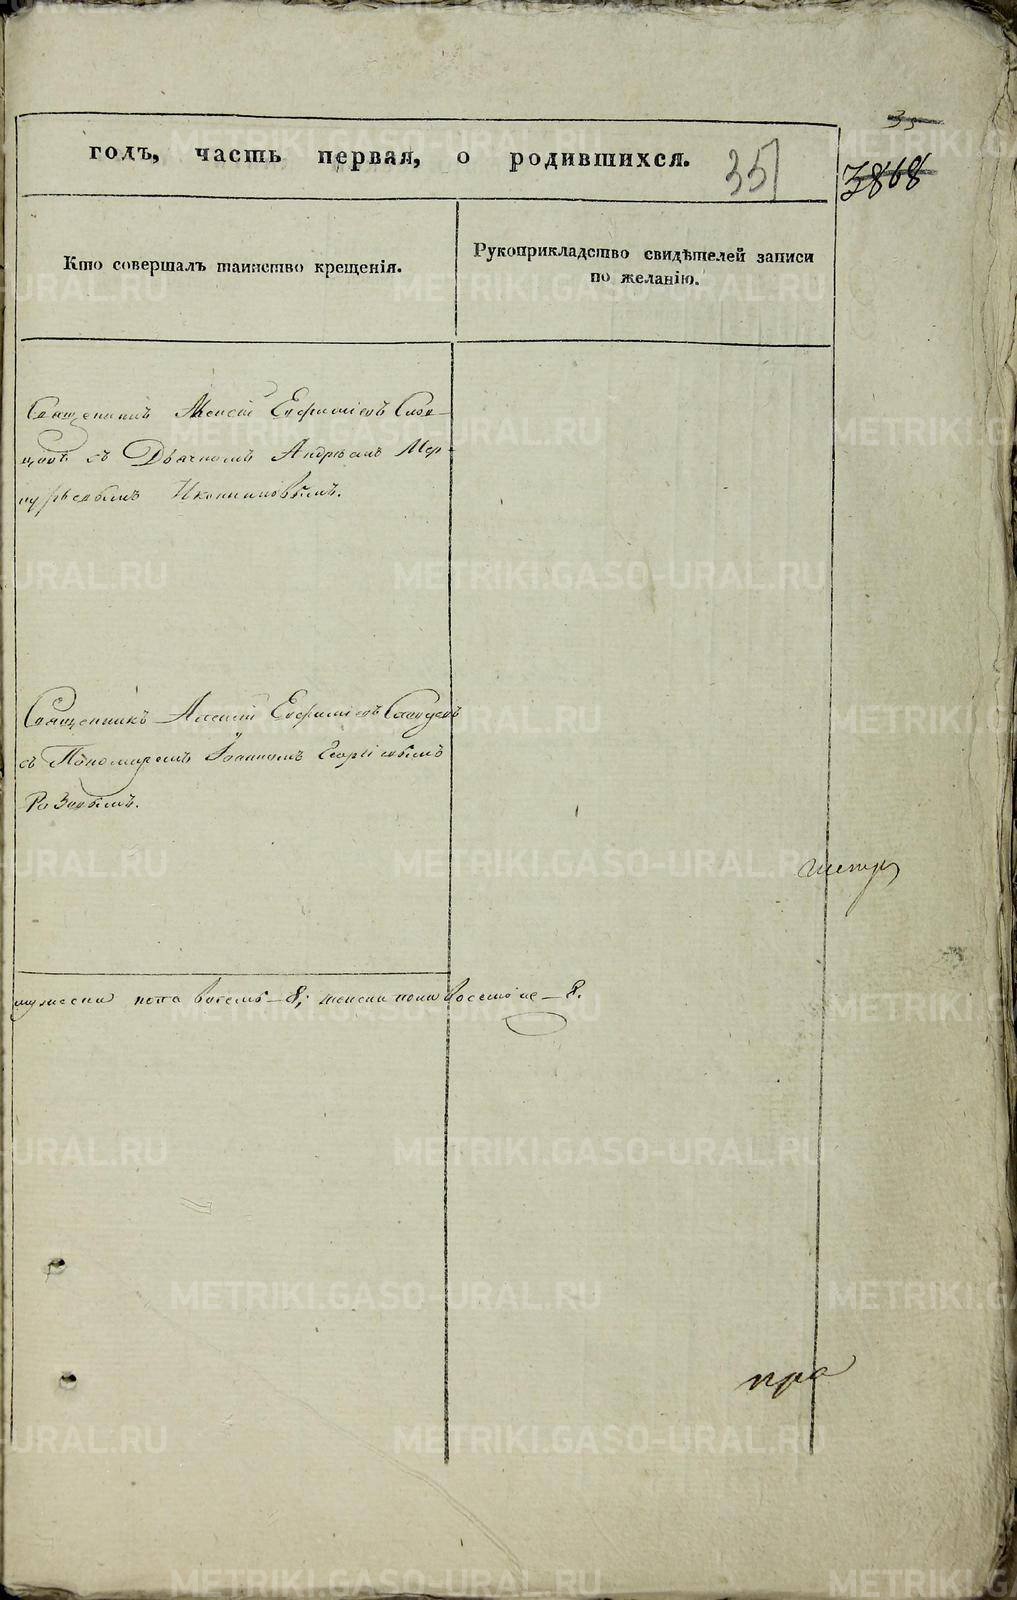 35
годъ, часть первая, о родившихся.
35
3868
Кто совершалъ таинство крещенія.
Рукоприкладство свидѣтелей записи
по желанію.
Священникъ Алексій Евфиміевъ Слов-
цовъ съ Дьячкомъ Андреемъ Мер-
курьевымъ Иконниковымъ.
Священникъ Алексій Евфиміевъ Словцовъ
съ Пономаремъ Іоанномъ Георгіевымъ
мужеска пола восемь – 8; женска пола восемь – 8.
METRIKI.GASO-URAL.RU